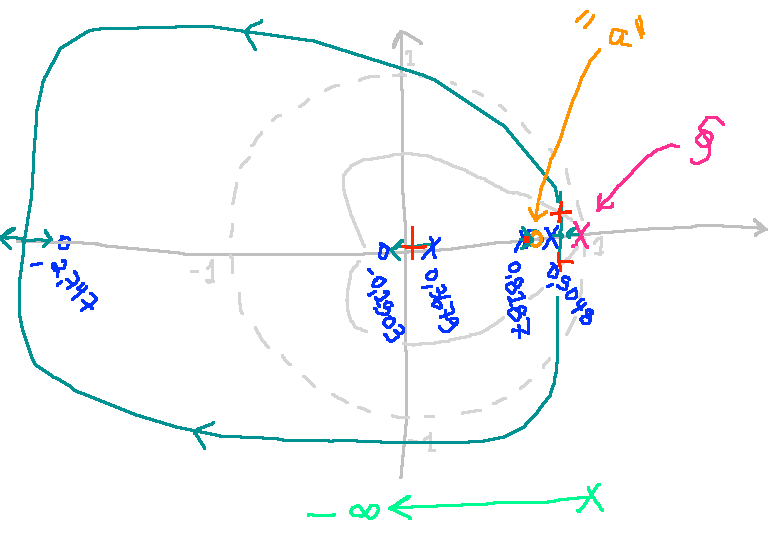 "a"
1
-1
1
-2,747
-0,1903
0,3679
0,8187
0,9048
-1
- ∞